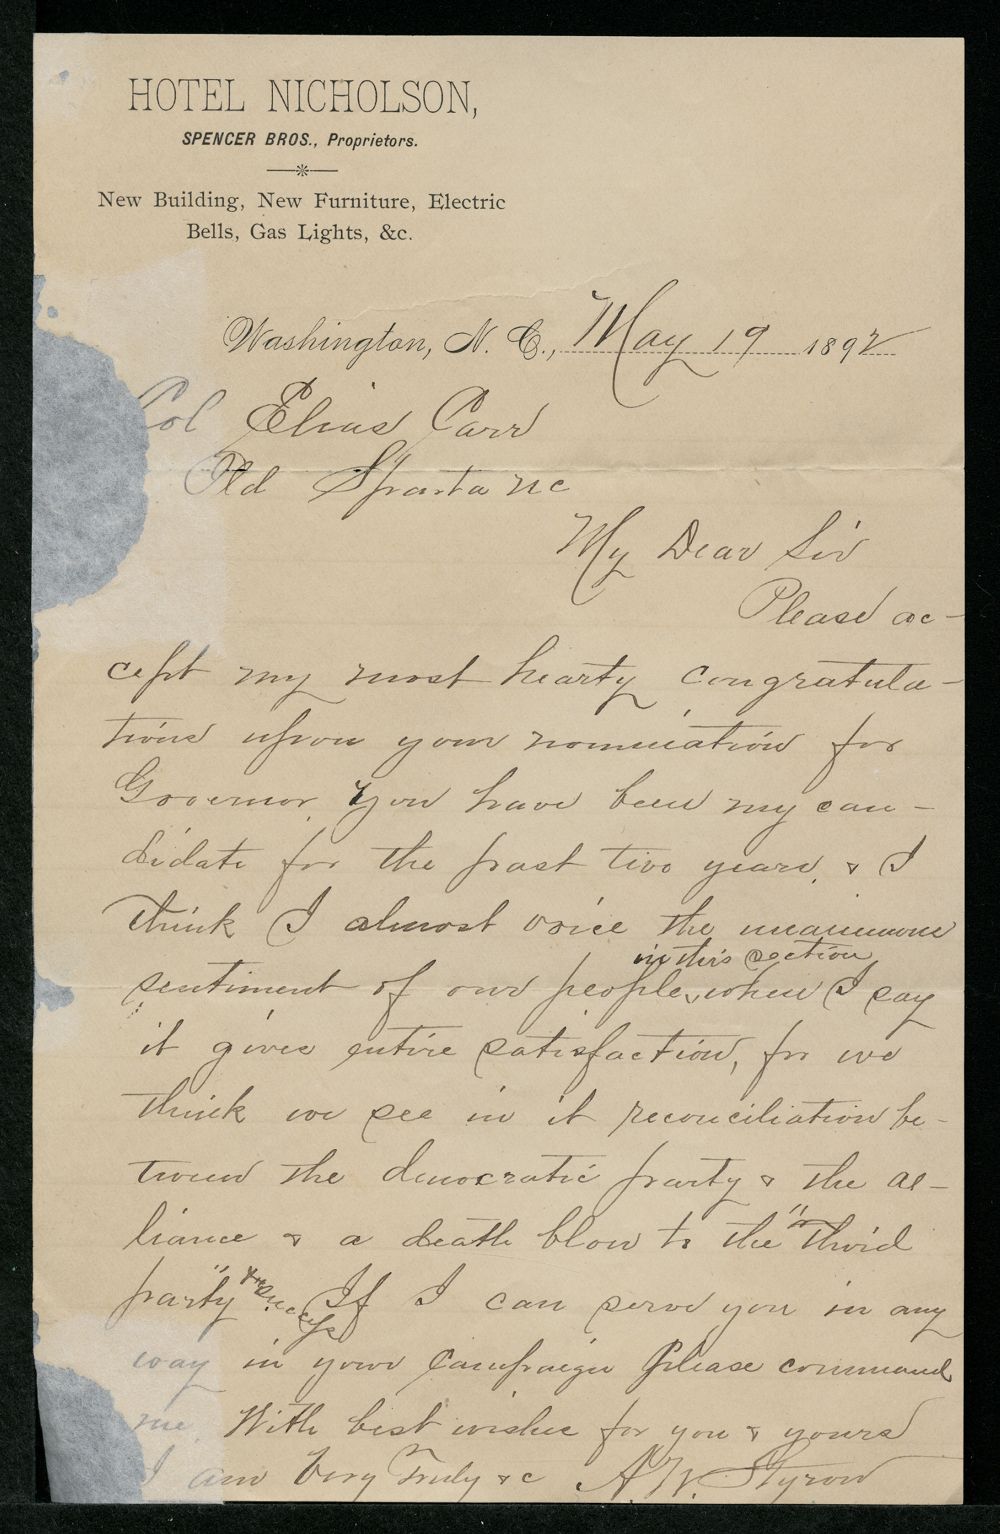 HOTEL NICHOLSON,
SPENCER BROS., Proprietors.
New Building, New Furniture, Electric
Bells, Gas Lights, &c.
Washington, N. C., May 19 1892
Col Elias Carr
Old Sparta NC
My Dear Sir
Please ac-
cept my most hearty congratula-
tions upon your nomination for
Governor. You have been my can-
didate for the past two years, & I
think I almost voice the unanimous
in this section
sentiment of our people, when I say
it gives entire satisfaction, for we
think we see in it reconciliation be-
tween the democratic party & the al-
liance & a death blow to the "third
party" success. If I can serve you in any
way in your campaign please command
me. With best wishes for you & yours
I am Very Truly &c A. W. Styron